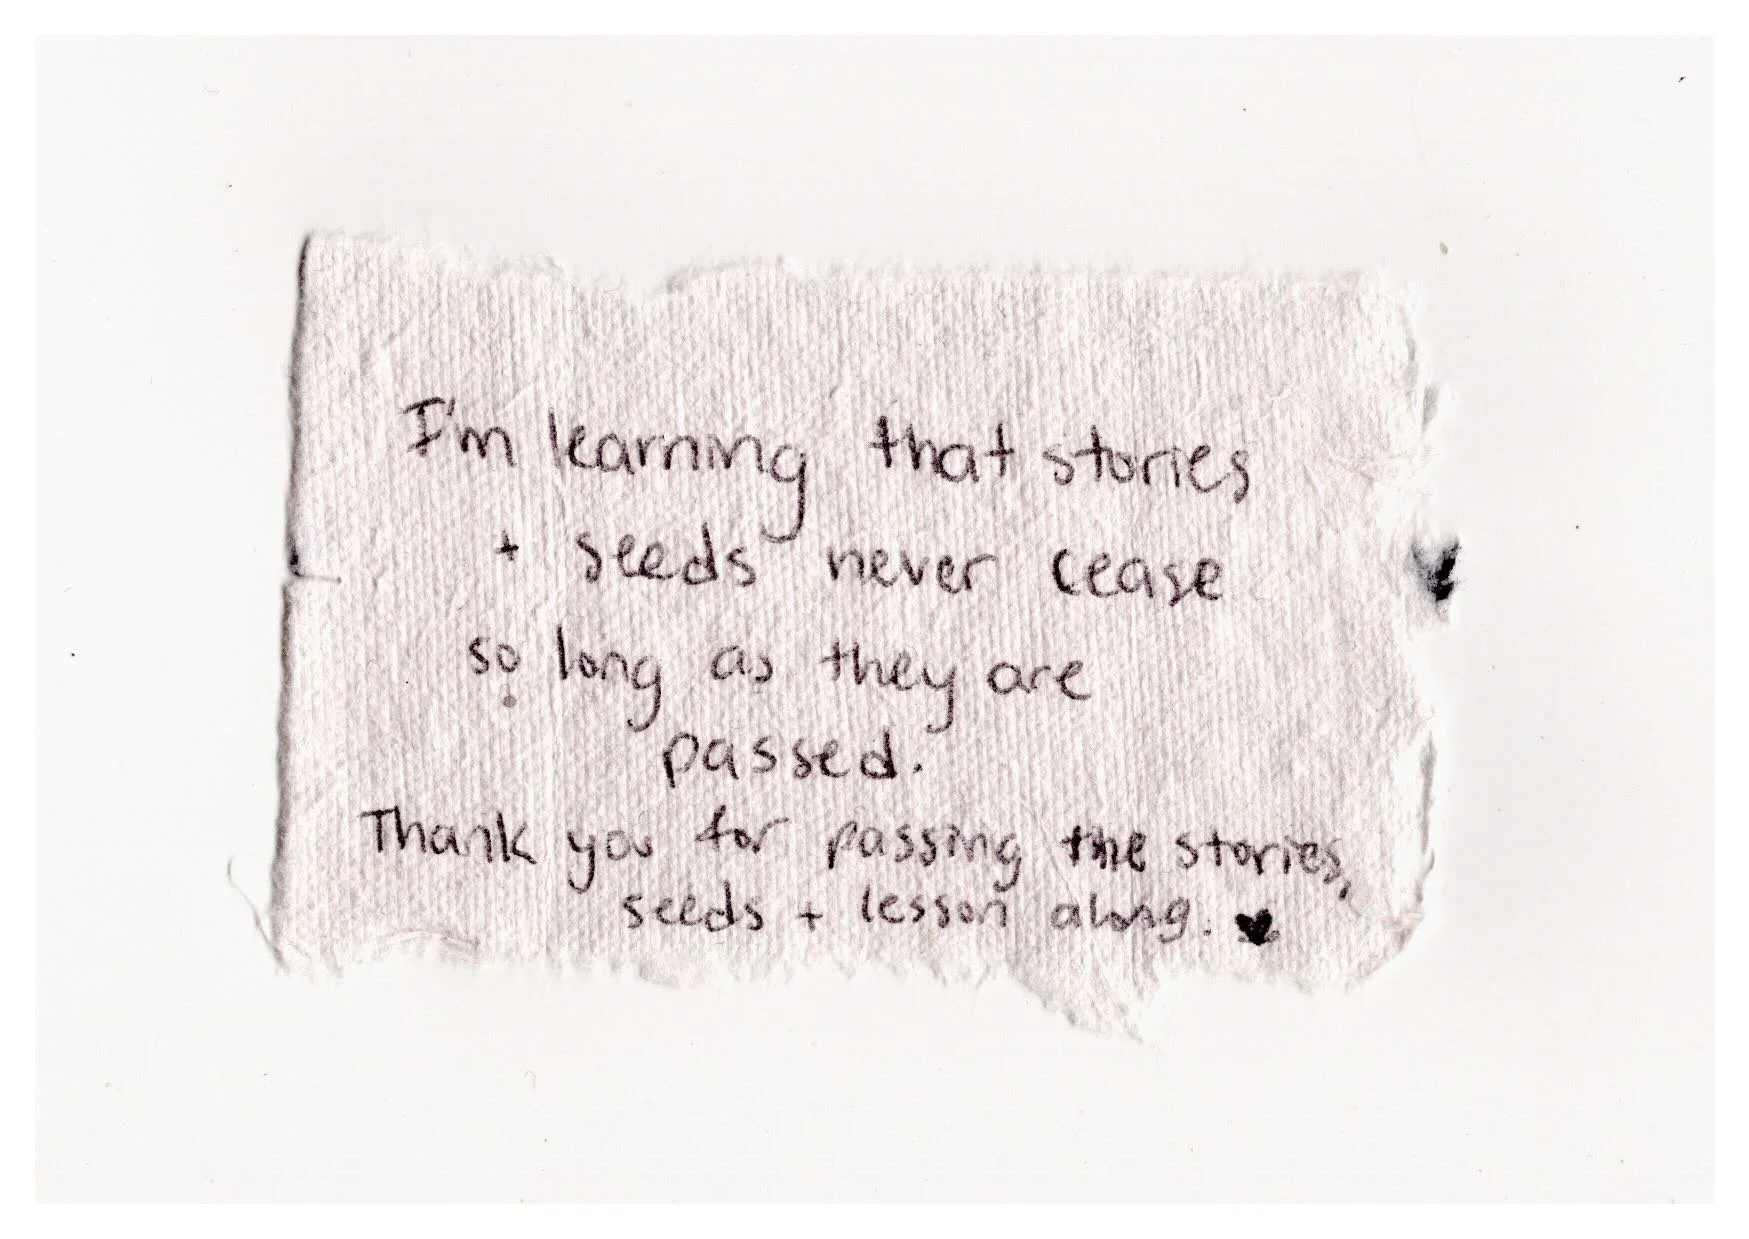 I'm learning that stories
+ seeds never cease
so long as they are
passed.
Thank you for passing the stories,
seeds + lesson along. ♥